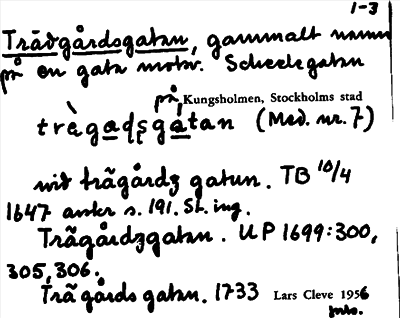 1-3
Trädgårdsgatan, gammalt namn
på en gata motsv. Scheelegatan
på Kungsholmen, Stockholms stad
trägaḍṣgátan (Med. nr. 7)
wid trägårdz gatun. TB 10/4
1647 ankr s. 191. St. ing.
Trägårdzgatan. UP 1699:300,
305, 306.
Trägårds gatan. 1733 Lars Cleve 1956